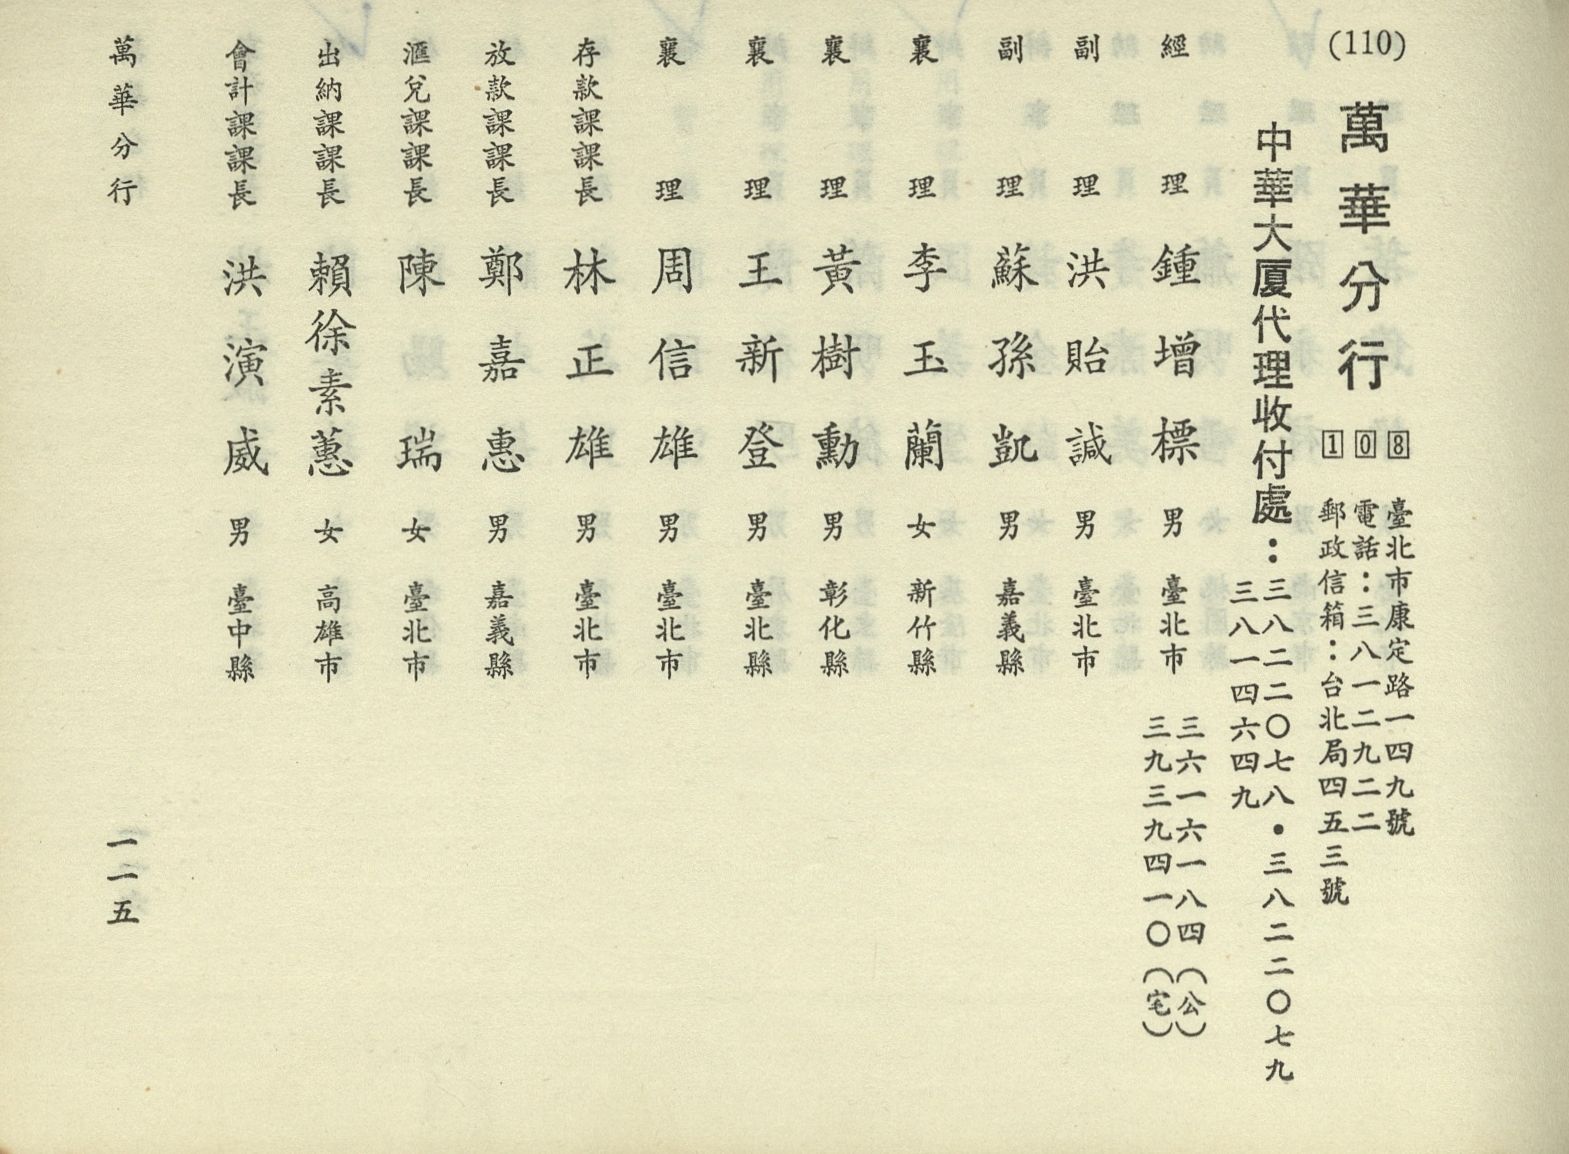 (110)
萬華分行
108
臺北市康定路一四九號
電話：三八一二九二二
郵政信箱：台北局四五三號
中華大厦代理收付處：三八二二〇七八・三八二二〇七九
三八一四六四九
經理 鍾增標 男 臺北市 三六一六一八四（公）
三九三九四一〇（宅）
副理 洪貽誠 男 臺北市
副理 蘇孫凱 男 嘉義縣
襄理 李玉蘭 女 新竹縣
襄理 黃樹勳 男 彰化縣
襄理 王新登 男 臺北縣
襄理 周信雄 男 臺北市
存款課課長 林正雄 男 臺北市
放款課課長 鄭嘉惠 男 嘉義縣
滙兌課課長 陳瑞 女 臺北市
出納課課長 賴徐素蕙 女 高雄市
會計課課長 洪演威 男 臺中縣
萬華分行
一一五